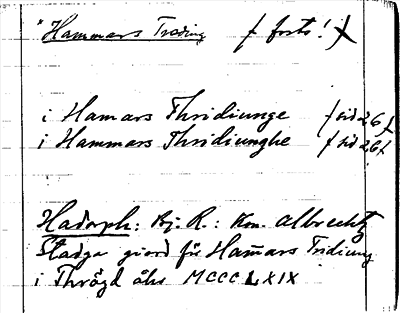 "Hammars Treding / forts! /
i Hamars Thridiunge / sid 26 /
i Hammars Thridiunghe / sid 26 /
Hadorph: Bj. R.: Kon. Albrechtz
Stadga giord för Ham̄ars Tridiung
i Thrögd åhr MCCCLXIX